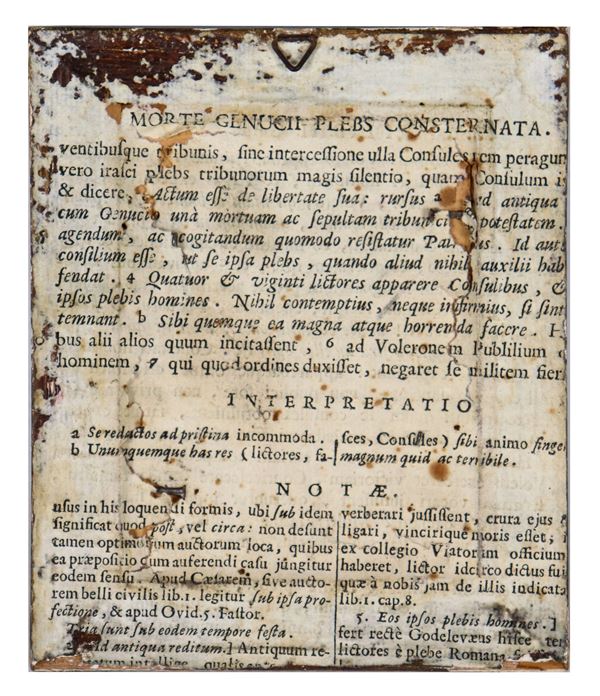 MORTE GENUCII PLEBS CONSTERNATA.
ventibusque tribunis, sine intercessione ulla Consules rem peragun
vero irasci plebs tribunorum magis silentio, quam Consulum i
& dicere, Actum esse de libertate sua: rursus ad antiqua
cum Genucio unà mortuam ac sepultam tribuniciam potestatem.
agendum, ac cogitandum quomodo resistatur Patribus. Id aut
consilium esse, ut se ipsa plebs, quando aliud nihil auxilii hab
fendat. 4 Quatuor & viginti lictores apparere Consulibus, &
ipsos plebis homines. Nihil contemptius, neque infirmius, si sint
temnant. b Sibi quemque ea magna atque horrenda facere. H
bus alii alios quum incitassent, 6 ad Voleronem Publilium
hominem, 7 qui quod ordines duxisset, negaret se militem fier
INTERPRETATIO
a Se redactos ad pristina incommoda.
b Unumquemque has res (lictores, fa-
sces, Consules) sibi animo finge
magnum quid ac terribile.
NOTÆ.
nsus in his loquendi formis, ubi sub idem
significat quod post, vel circa: non desunt
tamen optimorum auctorum loca, quibus
ea præpositio cum auferendi casu jungitur
eodem sensu. Apud Cæsarem, sive aucto-
rem belli civilis lib.1. legitur sub ipsa pro-
fectione, & apud Ovid. 5. Fastor.
Tria sunt sub eodem tempore festa.
Ad antiqua reditum.] Antiquum re-
intellige, qualis
verberari jussissent, crura ejus
ligari, vincirique moris esset; i
ex collegio Viatorum officium
haberet, lictor idcirco dictus fui
quæ à nobis jam de illis indicata
lib. 1. cap. 8.
5. Eos ipsos plebis homines.]
fert rectè Godelevæus hisce ter
lictores è plebe Romana